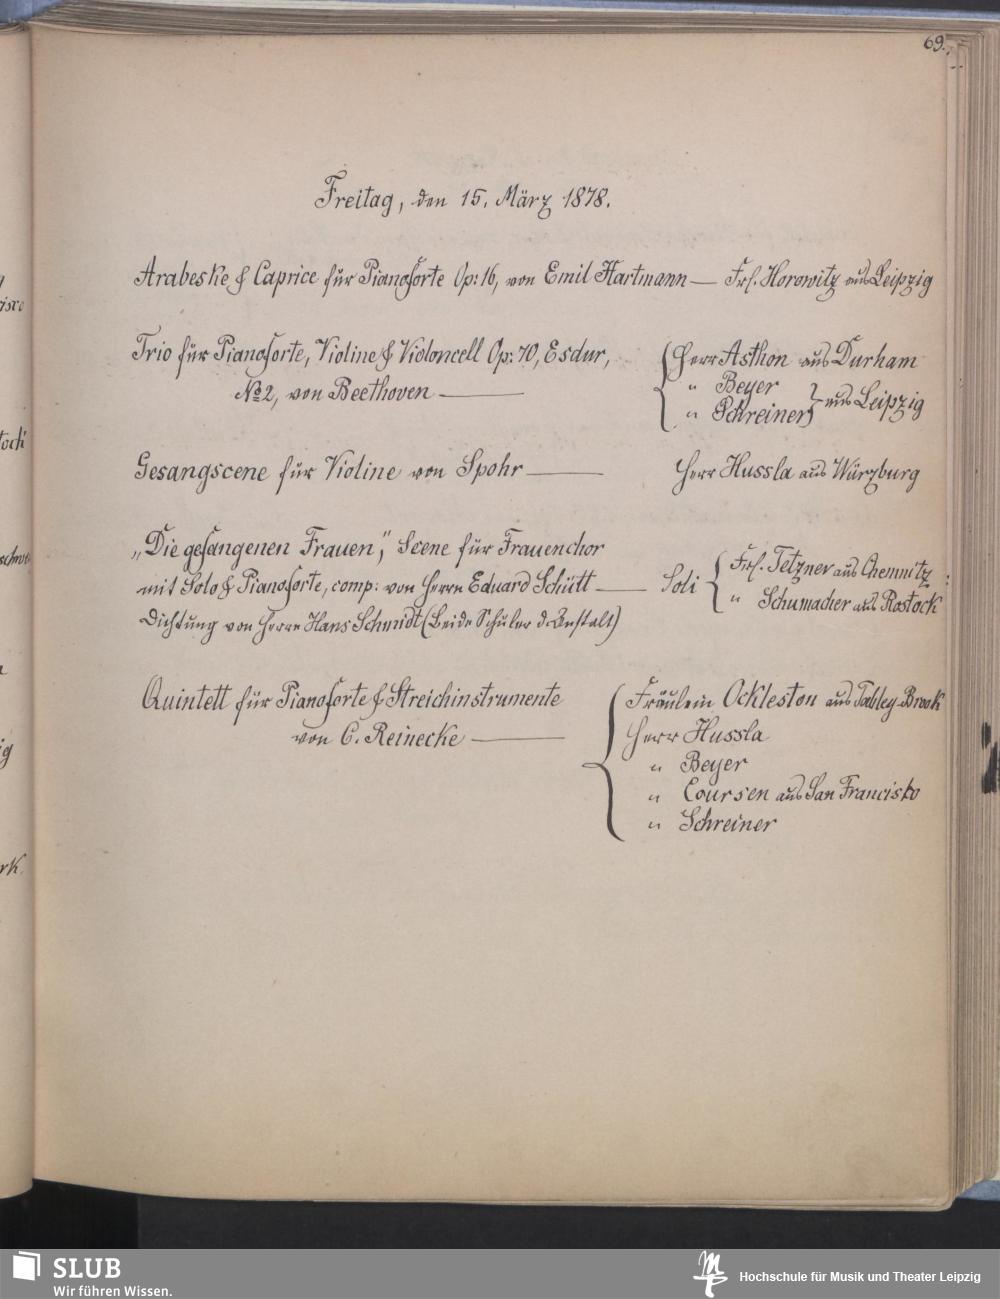 69.
Freitag, den 15. März 1878.
Arabeske & Caprice für Pianoforte Op: 16, von Emil Hartmann — Frl. Horowitz aus Leipzig
Trio für Pianoforte, Violine & Violoncell Op: 70, Esdur, Herr Asthon aus Durham
No 2, von Beethoven — " Beyer
" Schreiner } aus Leipzig
Gesangscene für Violine von Spohr — Herr Hussla aus Würzburg
„Die gefangenen Frauen", Scene für Frauenchor
mit Solo & Pianoforte, comp: von Herrn Eduard Schütt — Soli { Frl. Tetzner aus Chemnitz
Dichtung von Herrn Hans Schmidt (Beide Schüler d. Anstalt) " Schumacher aus Rostock
Quintett für Pianoforte & Streichinstrumente Fräulein Ockleston aus Tabley-Brook
von C. Reinecke — Herr Hussla
" Beyer
" Coursen aus San Francisko
" Schreiner
SLUB
Wir führen Wissen.
Hochschule für Musik und Theater Leipzig